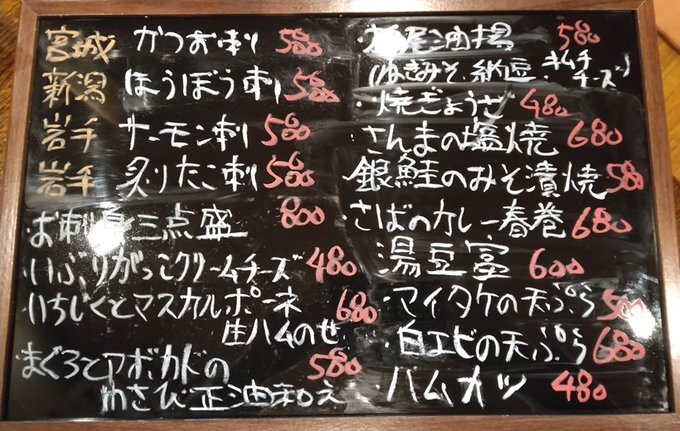 宮城 かつお刺 580
新潟 ほうぼう刺 580
岩手 サーモン刺 580
岩手 炙りたこ刺 580
お刺身三点盛 800
いぶりがっこクリームチーズ 480
いちじくとマスカルポーネ 680
生ハムのせ
まぐろとアボカドの 580
わさび正油和え
油揚 580
(ねぎみそ・納豆・キムチ・チーズ)
・焼ぎょうざ 480
・さんまの塩焼 680
・銀鮭のみそ漬焼 580
・さばのカレー春巻 680
・湯豆冨 600
・マイタケの天ぷら 500
・白エビの天ぷら 680
・ハムカツ 480